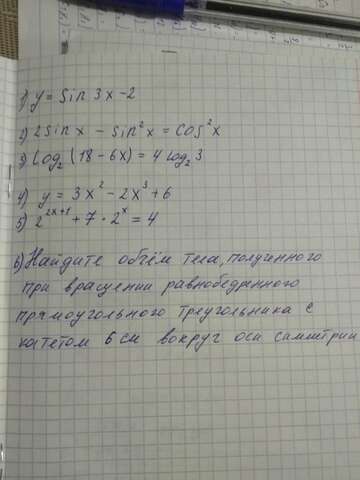 1) y = Sin 3x - 2
2) 2Sin x - Sin²x = Cos²x
3) Log₂(18 - 6x) = 4 log₂ 3
4) y = 3x² - 2x³ + 6
5) 2²ˣ⁺¹ + 7 · 2ˣ = 4
6) Найдите объём тела, полученного
при вращении равнобедренного
прямоугольного треугольника с
катетом 6 см вокруг оси симметрии